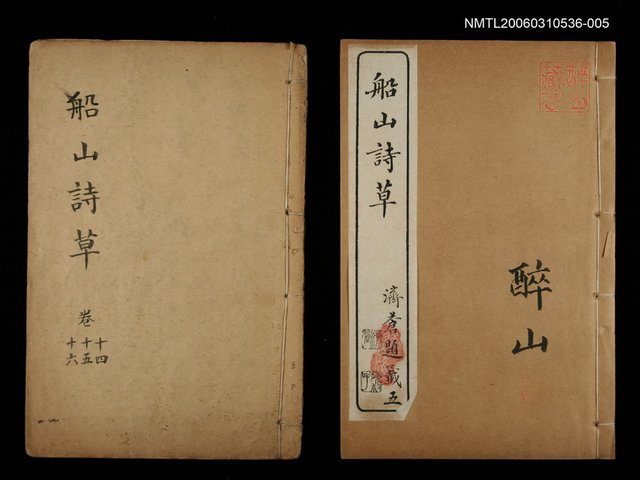 NMTL20060310536-005
船山詩草
卷十四
十五
十六
船山詩草
濟蒼題籤五
醉山
醉山